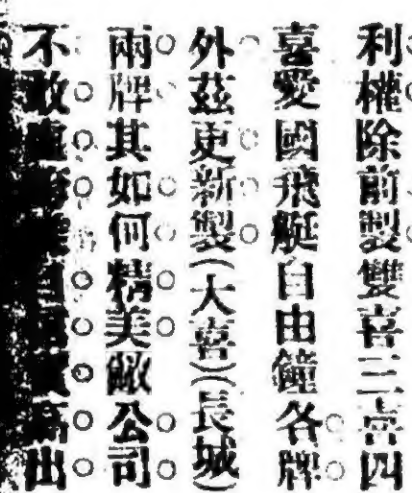 利權除前製雙喜三喜四
喜愛國飛艇自由鐘各牌
外茲更新製(大喜)(長城)
兩牌其如何精美敝公司
不敢
出